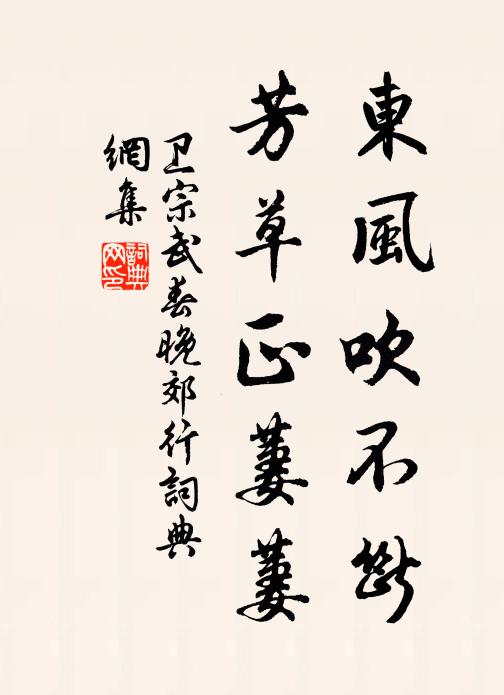 東風吹不斷
芳草正萋萋
卫宗武春晚郊行詞典
網集
詞典网印